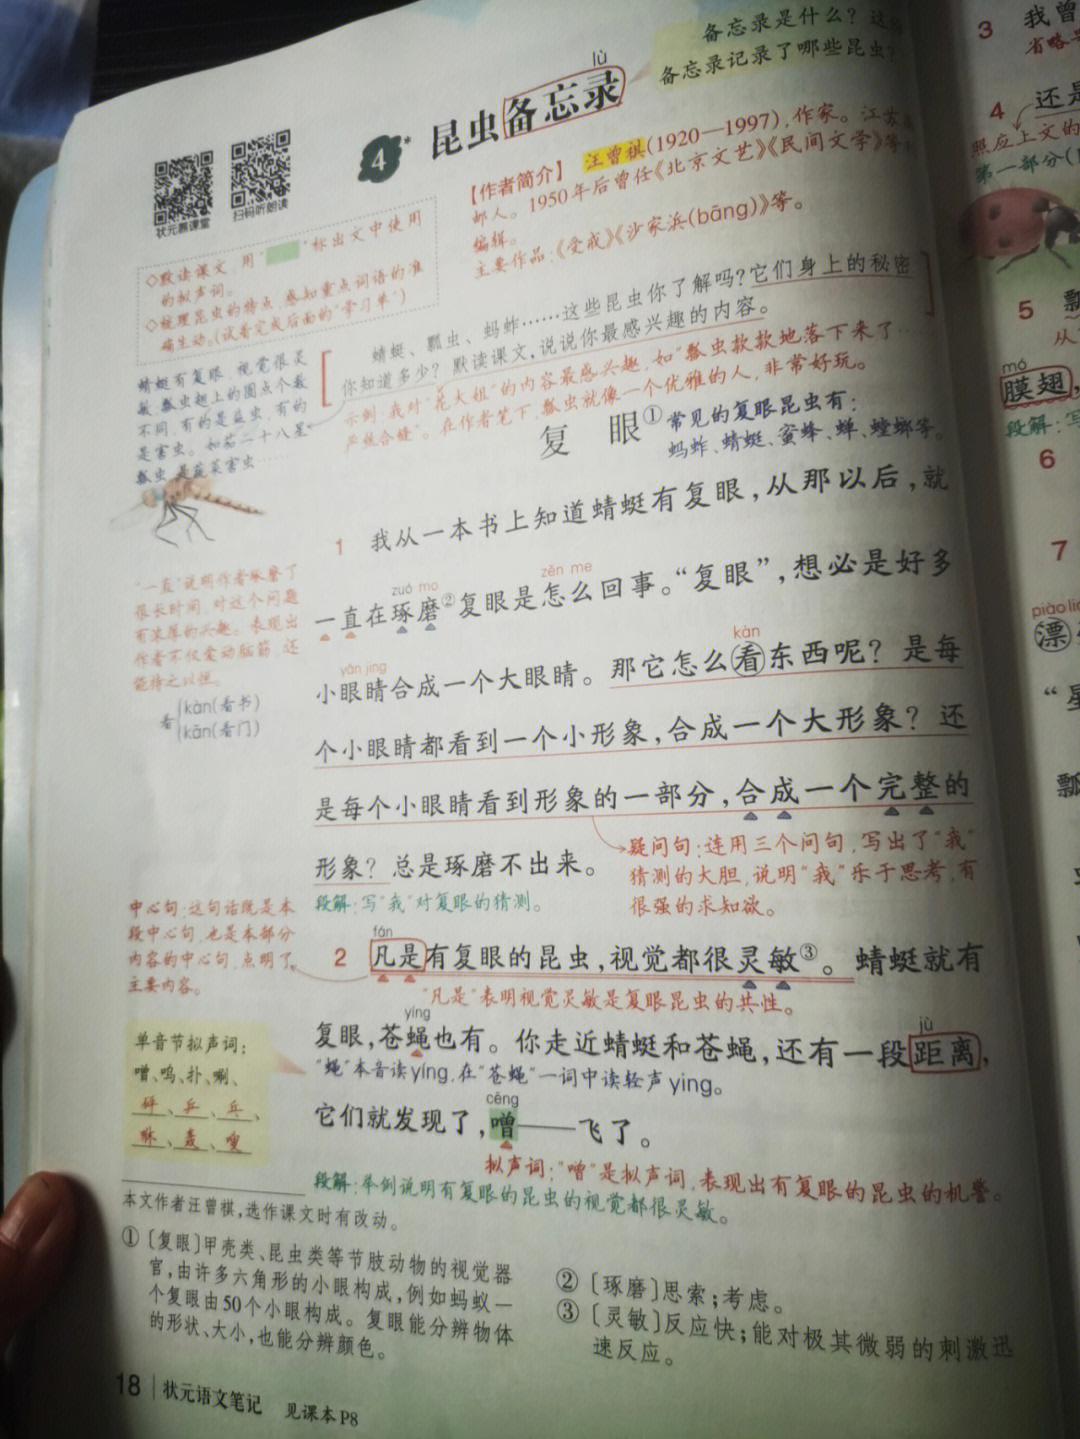 备忘录是什么？
备忘录记录了哪些昆虫？
lù
4* 昆虫备忘录
状元慕课堂
扫码听朗读
【作者简介】 汪曾祺(1920—1997)，作家。江苏
邮人。1950年后曾任《北京文艺》《民间文学》等
编辑。
主要作品：《受戒》《沙家浜(bāng)》等。
◇默读课文，用“ ”标出文中使用
的拟声词。
◇梳理昆虫的特点，感知重点词语的准
确生动。(试着完成后面的“学习单”)
蜻蜓、瓢虫、蚂蚱……这些昆虫你了解吗？它们身上的秘密
你知道多少？默读课文，说说你最感兴趣的内容。
示例：我对“花大姐”的内容最感兴趣，如“瓢虫款款地落下来了
严丝合缝”。在作者笔下，瓢虫就像一个优雅的人，非常好玩。
蜻蜓有复眼，视觉很灵
敏；瓢虫翅上的圆点个数
不同，有的是益虫，有的
是害虫。如茄二十八星
瓢虫，是蔬菜害虫
复 眼①
常见的复眼昆虫有：
蚂蚱、蜻蜓、蜜蜂、蝉、螳螂等。
1 我从一本书上知道蜻蜓有复眼，从那以后，就
zuó mo zěn me
一直在琢磨②复眼是怎么回事。“复眼”，想必是好多
yǎn jing kàn
小眼睛合成一个大眼睛。那它怎么看东西呢？是每
个小眼睛都看到一个小形象，合成一个大形象？还
是每个小眼睛看到形象的一部分，合成一个完整的
形象？总是琢磨不出来。
“一直”说明作者琢磨了
很长时间，对这个问题
有浓厚的兴趣。表现出
作者不仅爱动脑筋，还
能持之以恒。
看
kàn(看书)
kān(看门)
疑问句：连用三个问句，写出了“我”
猜测的大胆，说明“我”乐于思考，有
很强的求知欲。
段解：写“我”对复眼的猜测。
中心句：这句话既是本
段中心句，也是本部分
内容的中心句，点明了
主要内容。
fán
2 凡是有复眼的昆虫，视觉都很灵敏③。蜻蜓就有
“凡是”表明视觉灵敏是复眼昆虫的共性。
ying jù
复眼，苍蝇也有。你走近蜻蜓和苍蝇，还有一段距离，
“蝇”本音读yíng，在“苍蝇”一词中读轻声ying。
cēng
它们就发现了，噌——飞了。
拟声词：“噌”是拟声词，表现出有复眼的昆虫的机警。
段解：举例说明有复眼的昆虫的视觉都很灵敏。
单音节拟声词：
噌、呜、扑、唰、
砰、乒、乓、
咻、轰、嗖
本文作者汪曾祺，选作课文时有改动。
①〔复眼〕甲壳类、昆虫类等节肢动物的视觉器
官，由许多六角形的小眼构成，例如蚂蚁一
个复眼由50个小眼构成。复眼能分辨物体
的形状、大小，也能分辨颜色。
②〔琢磨〕思索；考虑。
③〔灵敏〕反应快；能对极其微弱的刺激迅
速反应。
18 状元语文笔记 见课本P8
3 我曾
省略号
4 还是
照应上文的
第一部分(
5 瓢
从
mó
膜翅，
段解：写
6
7
漂
“星
瓢